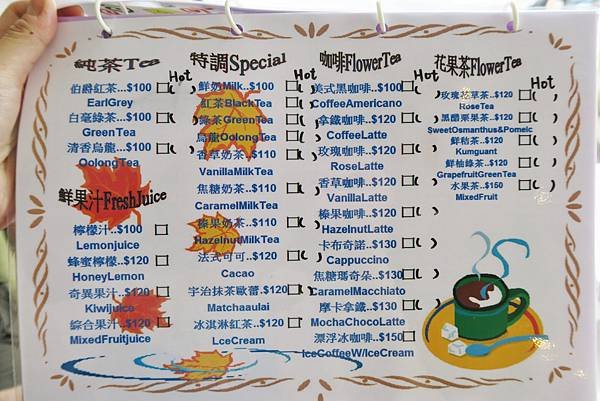 純茶Tea
Hot
伯爵紅茶...$100
EarlGrey
白毫綠茶...$100
GreenTea
清香烏龍...$100
OolongTea
鮮果汁FreshJuice
檸檬汁...$100
Lemonjuice
蜂蜜檸檬..$120
HoneyLemon
奇異果汁..$120
Kiwijuice
綜合果汁..$120
MixedFruitjuice
特調Special
Hot
鮮奶Milk..$100
紅茶BlackTea
綠茶GreenTea
烏龍OolongTea
香草奶茶..$110
VanillaMilkTea
焦糖奶茶..$110
CaramelMilkTea
榛果奶茶..$110
HazelnutMilkTea
法式可可..$120
Cacao
宇治抹茶歐蕾.$120
Matchaaulai
冰淇淋紅茶..$120
LceCream
咖啡FlowerTea
Hot
美式黑咖啡..$100
CoffeeAmericano
拿鐵咖啡..$120
CoffeeLatte
玫瑰咖啡..$120
RoseLatte
香草咖啡..$120
VanillaLatte
榛果咖啡..$120
HazelnutLatte
卡布奇諾..$130
Cappuccino
焦糖瑪奇朵..$130
CaramelMacchiato
摩卡拿鐵..$130
MochaChocoLatte
漂浮冰咖啡..$150
IceCoffeeW/IceCream
花果茶FlowerTea
Hot
玫瑰花草茶..$120
RoseTea
黑醋栗果茶..$120
SweetOsmanthus&Pomelc
鮮桔茶..$120
Kumguant
鮮柚綠茶..$120
GrapefruitGreenTea
水果茶..$150
MixedFruit